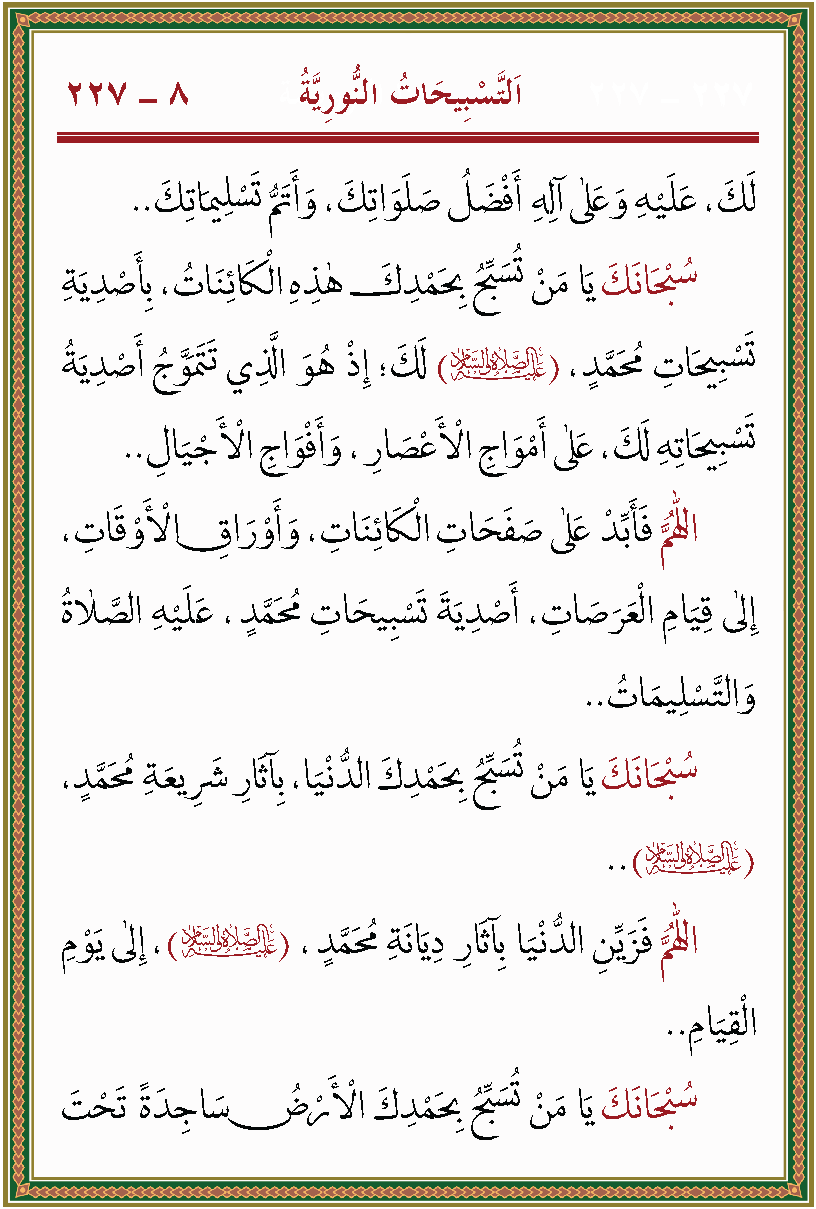 اَلتَّسْبِيحَاتُ النُّورِيَّةُ ٨ – ٢٢٧
لَكَ، عَلَيْهِ وَ عَلٰى آلِهِ أَفْضَلُ صَلَوَاتِكَ، وَأَتَمُّ تَسْلِيمَاتِكَ..
سُبْحَانَكَ يَا مَنْ تُسَبِّحُ بِحَمْدِكَ هٰذِهِ الْكَائِنَاتُ، بِأَصْدِيَةِ
تَسْبِيحَاتِ مُحَمَّدٍ، (عليه الصلاة والسلام) لَكَ؛ إِذْ هُوَ الَّذِي تَتَمَوَّجُ أَصْدِيَةُ
تَسْبِيحَاتِهِ لَكَ، عَلٰى أَمْوَاجِ الْأَعْصَارِ، وَأَفْوَاجِ الْأَجْيَالِ..
اللّٰهُمَّ فَأَبِّدْ عَلٰى صَفَحَاتِ الْكَائِنَاتِ، وَأَوْرَاقِ الْأَوْقَاتِ،
إِلٰى قِيَامِ الْعَرَصَاتِ، أَصْدِيَةَ تَسْبِيحَاتِ مُحَمَّدٍ، عَلَيْهِ الصَّلَاةُ
وَالتَّسْلِيمَاتُ..
سُبْحَانَكَ يَا مَنْ تُسَبِّحُ بِحَمْدِكَ الدُّنْيَا، بِآثَارِ شَرِيعَةِ مُحَمَّدٍ،
(عليه الصلاة والسلام)..
اللّٰهُمَّ فَزَيِّنِ الدُّنْيَا بِآثَارِ دِيَانَةِ مُحَمَّدٍ، (عليه الصلاة والسلام)، إِلٰى يَوْمِ
الْقِيَامِ..
سُبْحَانَكَ يَا مَنْ تُسَبِّحُ بِحَمْدِكَ الْأَرْضُ سَاجِدَةً تَحْتَ